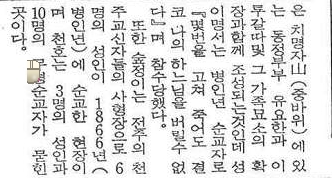 은 치명자山(중바위)에 있
는 동정부부 유요한과 이
루갈따및 그 가족묘소의 확
장과함께 조성되는것인데 성
이명서는 병인년 순교자로
『몇번을 고쳐 죽어도 결
코 나의 하느님을 버릴수 없
다』며 참수당했다.
또한 숲정이는 전주의 천
주교신자들의 사형장으로 6
명의 성인이 1866년(
병인년)에 순교한 현장이
며 천호는 3명의 성인과
10명의 묻힌
곳이다.